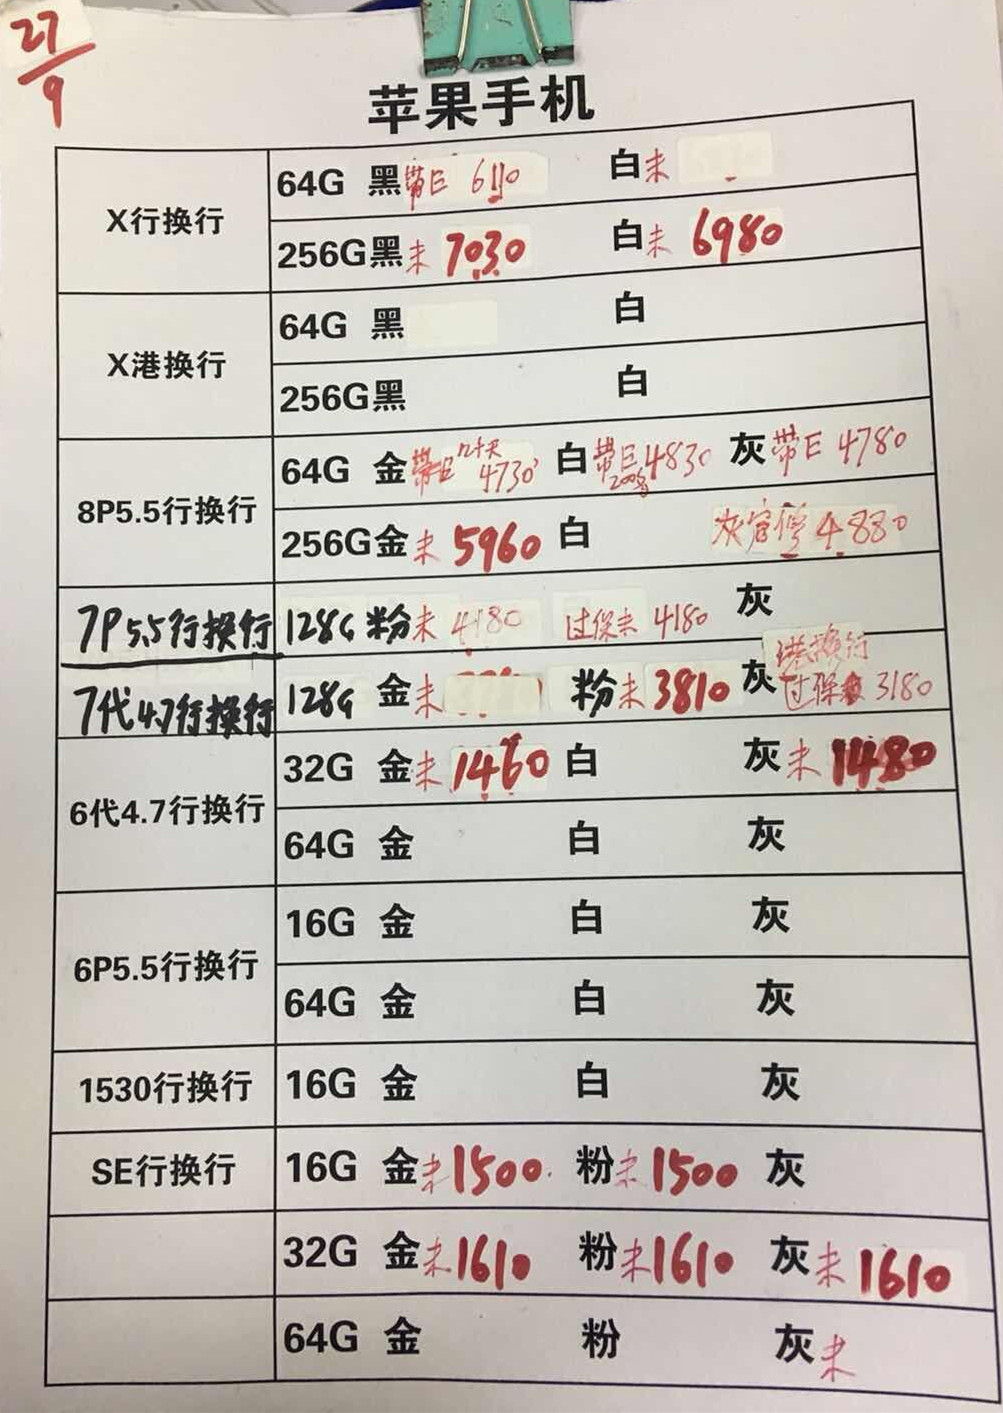 27
9
苹果手机
X行换行
64G 黑 带E 6110 白 未
256G黑 未 7030 白 未 6980
X港换行
64G 黑 白
256G黑 白
8P5.5行换行
64G 金 带E 几十天 4730 白 带E 200多 4830 灰 带E 4780
256G金 未 5960 白 灰官修 4880
7P5.5行换行 128G 粉 未 4180 过保未 4180 灰
7代4.7行换行 128G 金 未 粉 未 3810 灰 港换行 过保未 3180
6代4.7行换行
32G 金 未 1460 白 灰 未 1480
64G 金 白 灰
6P5.5行换行
16G 金 白 灰
64G 金 白 灰
1530行换行 16G 金 白 灰
SE行换行 16G 金 未 1500 粉 未 1500 灰
32G 金 未 1610 粉 未 1610 灰 未 1610
64G 金 粉 灰 未